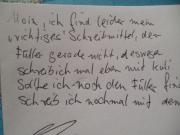 Moin, ich find leider mein
"richtiges" Schreibmittel, den
Füller gerade nicht, deswegen
schreib ich mal eben mit Kuli
Sollte ich noch den Füller finden
schreib ich nochmal mit dem